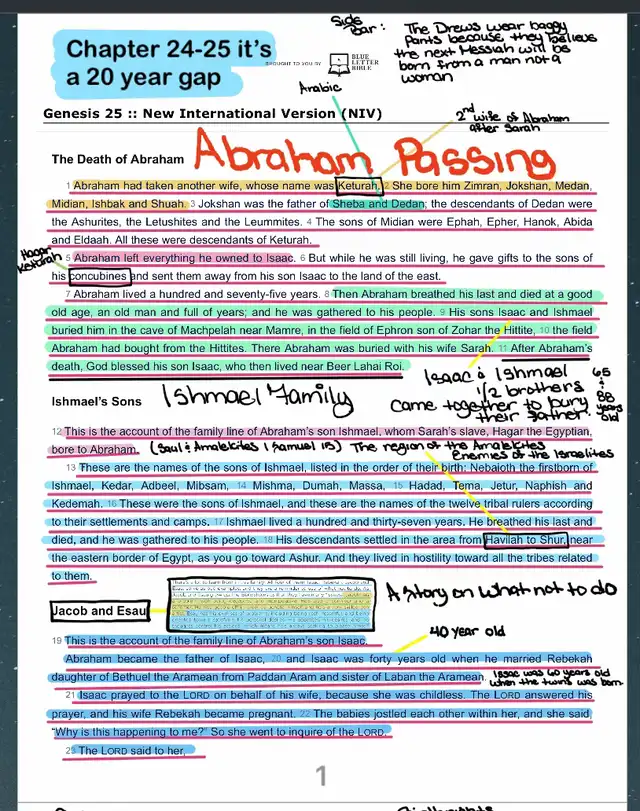 Side
Bar:
The Drews wear baggy
Pants because they believe
the next Messiah will be
born from a man not a
woman
Chapter 24-25 it's
a 20 year gap
BROUGHT TO YOU BY
BLUE
LETTER
BIBLE
Arabic
Genesis 25 :: New International Version (NIV)
2nd wife of Abraham
after Sarah
The Death of Abraham
Abraham Passing
1 Abraham had taken another wife, whose name was Keturah. 2 She bore him Zimran, Jokshan, Medan,
Midian, Ishbak and Shuah. 3 Jokshan was the father of Sheba and Dedan; the descendants of Dedan were
the Ashurites, the Letushites and the Leummites. 4 The sons of Midian were Ephah, Epher, Hanok, Abida
and Eldaah. All these were descendants of Keturah.
Hagar
Keturah
5 Abraham left everything he owned to Isaac. 6 But while he was still living, he gave gifts to the sons of
his concubines and sent them away from his son Isaac to the land of the east.
7 Abraham lived a hundred and seventy-five years. 8 Then Abraham breathed his last and died at a good
old age, an old man and full of years; and he was gathered to his people. 9 His sons Isaac and Ishmael
buried him in the cave of Machpelah near Mamre, in the field of Ephron son of Zohar the Hittite, 10 the field
Abraham had bought from the Hittites. There Abraham was buried with his wife Sarah. 11 After Abraham's
death, God blessed his son Isaac, who then lived near Beer Lahai Roi.
Isaac & Ishmael
1/2 brothers
came together to bury
their father.
65
&
88
years
old
Ishmael's Sons
Ishmael Family
12 This is the account of the family line of Abraham's son Ishmael, whom Sarah's slave, Hagar the Egyptian,
bore to Abraham.
(Saul & Amalekites 1 Samuel 15) The region of the Amalekites
Enemies of the Israelites
13 These are the names of the sons of Ishmael, listed in the order of their birth: Nebaioth the firstborn of
Ishmael, Kedar, Adbeel, Mibsam, 14 Mishma, Dumah, Massa, 15 Hadad, Tema, Jetur, Naphish and
Kedemah. 16 These were the sons of Ishmael, and these are the names of the twelve tribal rulers according
to their settlements and camps. 17 Ishmael lived a hundred and thirty-seven years. He breathed his last and
died, and he was gathered to his people. 18 His descendants settled in the area from Havilah to Shur, near
the eastern border of Egypt, as you go toward Ashur. And they lived in hostility toward all the tribes related
to them.
A story on what not to do
Jacob and Esau
40 year old
19 This is the account of the family line of Abraham's son Isaac.
Abraham became the father of Isaac, 20 and Isaac was forty years old when he married Rebekah
daughter of Bethuel the Aramean from Paddan Aram and sister of Laban the Aramean.
Isaac was 60 years old
when the twins was born
21 Isaac prayed to the LORD on behalf of his wife, because she was childless. The LORD answered his
prayer, and his wife Rebekah became pregnant. 22 The babies jostled each other within her, and she said,
"Why is this happening to me?" So she went to inquire of the LORD.
23 The LORD said to her,
1